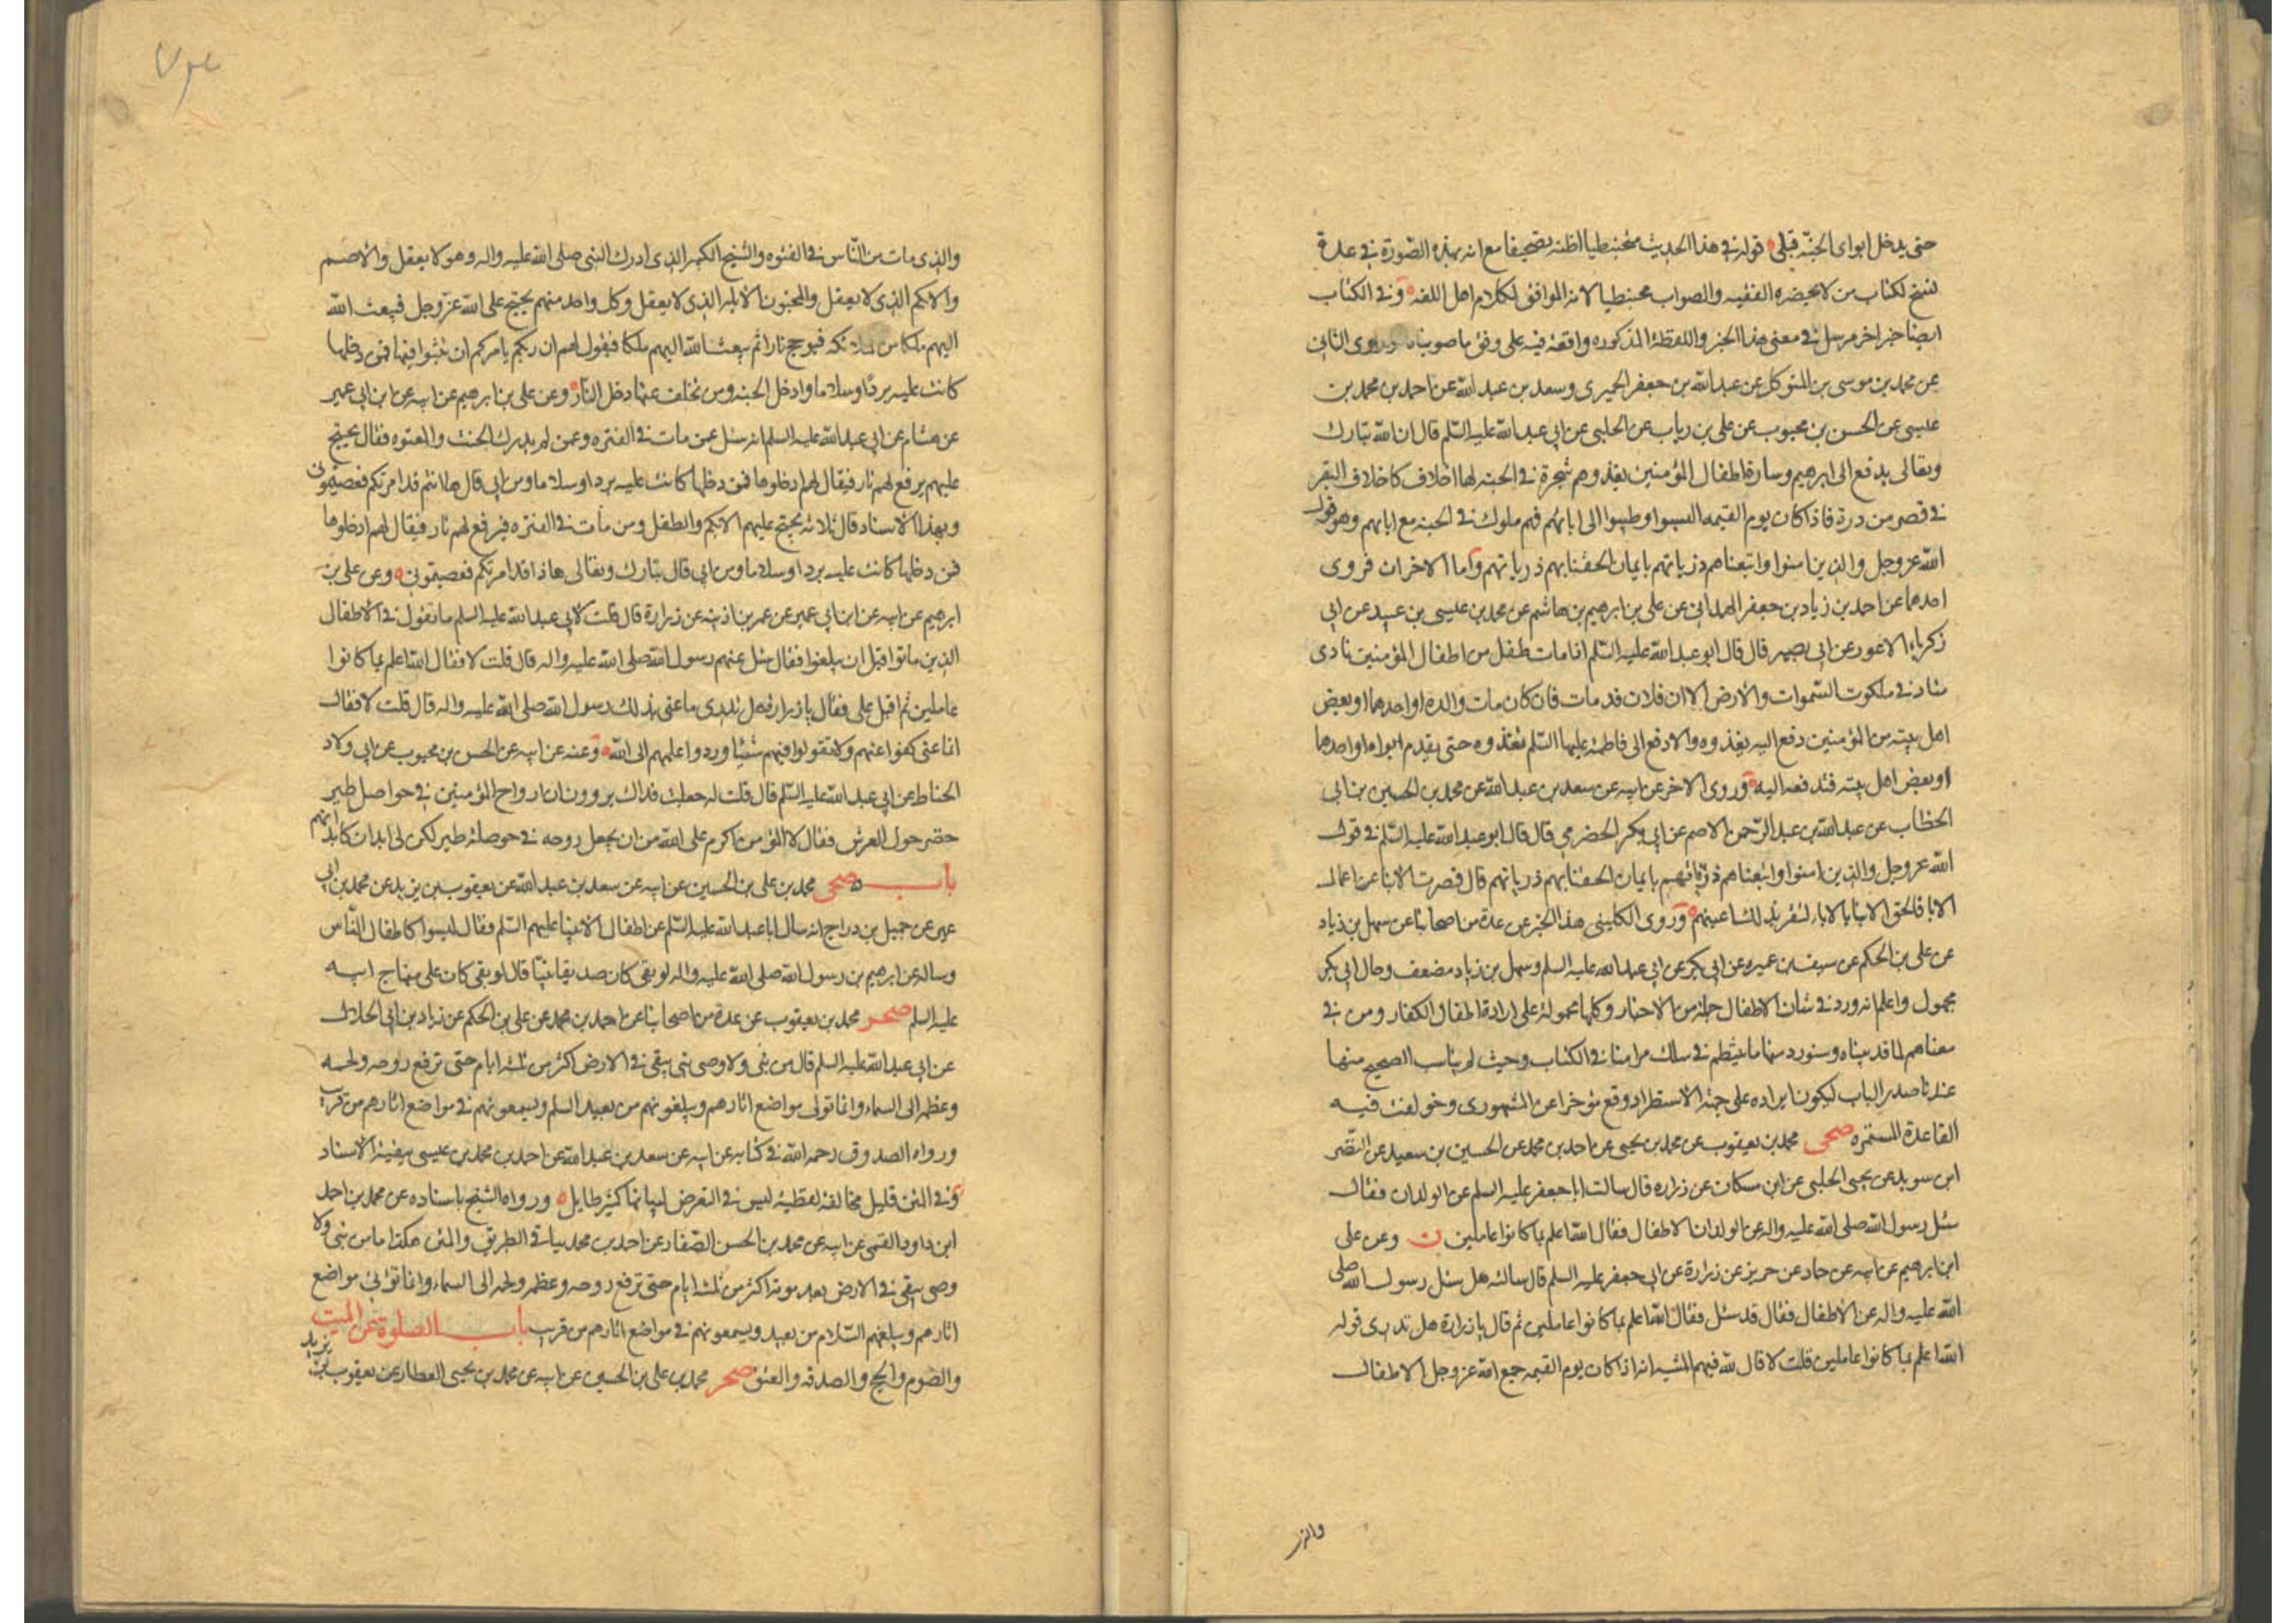 حتى يدخل ابواى الجنّة قبلى قوله فى هذا الحديث محبنطيا اظنه تصحيفا مع انه بهذه الصّورة فى عدة
نسخ لكتاب من لا يحضره الفقيه والصواب محبنطيا لانه الموافق لكلام اهل اللغه وفى الكتاب
ايضا خبر اخر مرسل فى معنى هذا الخبر واللفظة المذكوره واقعة فيه على وفق ما صوبناه وروى الثانى
عن محمد بن موسى بن المتوكل عن عبد الله بن جعفر الحميرى وسعد بن عبد الله عن احمد بن محمد بن
عيسى عن الحسن بن محبوب عن على بن رياب عن الحلبى عن ابى عبد الله عليه السّلم قال ان الله تبارك
وتعالى يدفع الى ابرهيم وسارة اطفال المؤمنين يغذوهم شجرة فى الجنة لها اخلاف كاخلاف البقر
فى قصر من درة فاذا كان يوم القيمه البسوا وطيبوا الى ابائهم فهم ملوك فى الجنة مع ابائهم وهو قول
الله عز وجل والذين امنوا واتبعناهم ذرياتهم بايمان الحقنا بهم ذرياتهم واما الاخران فروى
احدهما عن احمد بن زياد بن جعفر الهمدانى عن على بن ابرهيم بن هاشم عن محمد بن عيسى بن عبيد عن ابى
زكرياء الاعور عن ابى بصير قال قال ابو عبد الله عليه السّلم اذا مات طفل من اطفال المؤمنين نادى
مناد فى ملكوت السّموات والارض الا ان فلان قد مات فان كان مات والده او احدهما او بعض
اهل بيته من المؤمنين دفع اليه يغذوه والا دفع الى فاطمة عليها السّلم تغذوه حتى يقدم ابواه او احدهما
او بعض اهل بيته فتدفعه اليه وروى الاخر عن ابيه عن سعد بن عبد الله عن محمد بن الحسين بن ابى
الخطّاب عن عبد الله بن عبد الرّحمن الاصم عن ابى بكر الحضرمى قال قال ابو عبد الله عليه السّلم فى قول
الله عز وجل والذين امنوا واتبعناهم ذرّياتهم بايمان الحقنا بهم ذرياتهم قال قصرت الابنا عن اعمال
الابا فالحق الابنا بالاباء لتقر بذلك اعينهم وروى الكلينى هذا الخبر عن عدة من اصحابنا عن سهل بن زياد
عن على بن الحكم عن سيف بن عميره عن ابى بكر عن ابى عبد الله عليه السلم وسهل بن زياد مضعف وحال ابى بكر
مجهول واعلم انه ورد فى شان الاطفال جملة من الاخبار وكلها محمولة على ارادة اطفال الكفار ومن فى
معناهم لما قد بيناه وسنورد منها ما ينتظم فى سلك مرامنا فى الكتاب وحيث لم يناسب الصحيح منها
عندنا صدر الباب ليكون ايراده على جهة الاستطراد وقع مؤخرا عن المشهورى وخولفت فيه
القاعدة المستمره صحى محمد بن يعقوب عن محمد بن يحيى عن احمد بن محمد عن الحسين بن سعيد عن النّضر
ابن سويد عن يحيى الحلبى عن ابن مسكان عن زراره قال سالت ابا جعفر عليه السلم عن الولدان فقال
سئل رسول الله صلى الله عليه واله عن الولدان الاطفال فقال الله اعلم بما كانوا عاملين ن وعن على
ابن ابرهيم عن ابيه عن حماد عن حريز عن زرارة عن ابى جعفر عليه السلم قال سالته هل سئل رسول الله صلى
الله عليه واله عن الاطفال فقال قد سئل فقال الله اعلم بما كانوا عاملين ثم قال يا زرارة هل تدرى قوله
الله اعلم بما كانوا عاملين قلت لا قال لله فيهم المشيه انه اذا كان يوم القيمه جمع الله عز وجل الاطفال
والذى
والذى مات من النّاس فى الفتره والشيخ الكبير الذى ادرك النبى صلى الله عليه واله وهو لا يعقل والاصم
والابكم الذى لا يعقل والمجنون الابله الذى لا يعقل وكل واحد منهم يحتج على الله عز وجل فيبعث الله
اليهم ملكا من الملائكه فيوجج نارا ثم يبعث الله اليهم ملكا فيقول لهم ان ربكم يامركم ان تثبوا فيها فمن دخلها
كانت عليه بردًا وسلاما وادخل الجنه ومن تخلف عنها دخل النار وعن على بن ابرهيم عن ابيه عن ابن ابى عمير
عن هشام عن ابى عبد الله عليه السلم انه سئل عمن مات فى الفتره وعمن لم يدرك الحنث والمعتوه فقال يحتج
عليهم يرفع لهم نار فيقال لهم ادخلوها فمن دخلها كانت عليه بردا وسلاما ومن ابى قال ها انتم قد امرتكم فعصيتمونى
وبهذا الاسناد قال ثلاثه يحتج عليهم الابكم والطفل ومن مات فى الفتره فيرفع لهم نار فيقال لهم ادخلوها
فمن دخلها كانت عليه بردا وسلاما ومن ابى قال تبارك وتعالى هذا قد امرتكم فعصيتمونى وعن على بن
ابرهيم عن ابيه عن ابن ابى عمير عن عمر بن اذينه عن زرارة قال قلت لابى عبد الله عليه السلم ما تقول فى الاطفال
الذين ماتوا قبل ان يبلغوا فقال سئل عنهم رسول الله صلى الله عليه واله قال قلت لا فقال الله اعلم بما كانوا
عاملين ثم اقبل على فقال يا زراره هل تدرى ما عنى بذلك رسول الله صلى الله عليه واله قال قلت لا فقال
انما عنى كفوا عنهم ولا تقولوا فيهم شيئا وردوا علمهم الى الله وعنه عن ابيه عن الحسن بن محبوب عن ابى ولاد
الحناط عن ابى عبد الله عليه السّلم قال قلت له جعلت فداك يروون ان ارواح المؤمنين فى حواصل طير
خضر حول العرش فقال لا المؤمن اكرم على الله من ان يجعل روحه فى حوصلة طير لكن فى ابدان كابدانهم
باب صحى محمد بن على بن الحسين عن ابيه عن سعد بن عبد الله عن يعقوب بن يزيد عن محمد بن ابى
عمير عن جميل بن دراج انه سال ابا عبد الله عليه السّلم عن اطفال الانبيا عليهم السّلم فقال ليسوا كاطفال النّاس
وساله عن ابرهيم بن رسول الله صلى الله عليه واله لو بقى كان صديقا نبيّا قال لو بقى كان على منهاج ابيه
عليه السلم صحر محمد بن يعقوب عن عدة من اصحابنا عن احمد بن محمد عن على بن الحكم عن زياد بن ابى الحلال
عن ابى عبد الله عليه السلم قال من نبى ولا وصى نبى يبقى فى الارض اكثر من ثلثه ايام حتى ترفع روحه ولحمه
وعظمه الى السماء وانما تؤتى مواضع اثارهم ويبلغونهم من بعيد السلم ويسمعونهم فى مواضع اثارهم من قريب
ورواه الصدوق رحمه الله فى كتابه عن ابيه عن سعد بن عبد الله عن احمد بن محمد بن عيسى ببقية الاسناد
وفى المتن قليل مخالفة لفظية ليس فى التعرض لبيانها كثير طايل ورواه الشيخ باسناده عن محمد بن احمد
ابن داود القمى عن ابيه عن محمد بن الحسن الصّفار عن احمد بن محمد بباقى الطريق والمتن هكذا ما من نبى ولا
وصى يبقى فى الارض بعد موته اكثر من ثلثه ايام حتى ترفع روحه وعظمه ولحمه الى السماء وانما تؤتى مواضع
اثارهم ويبلغهم السّلام من بعيد ويسمعونهم فى مواضع اثارهم من قريب باب الصلوة عن الميت
والصوم والحج والصدقه والعتق صحر محمد بن على بن الحسين عن ابيه عن محمد بن يحيى العطار عن يعقوب بن يزيد